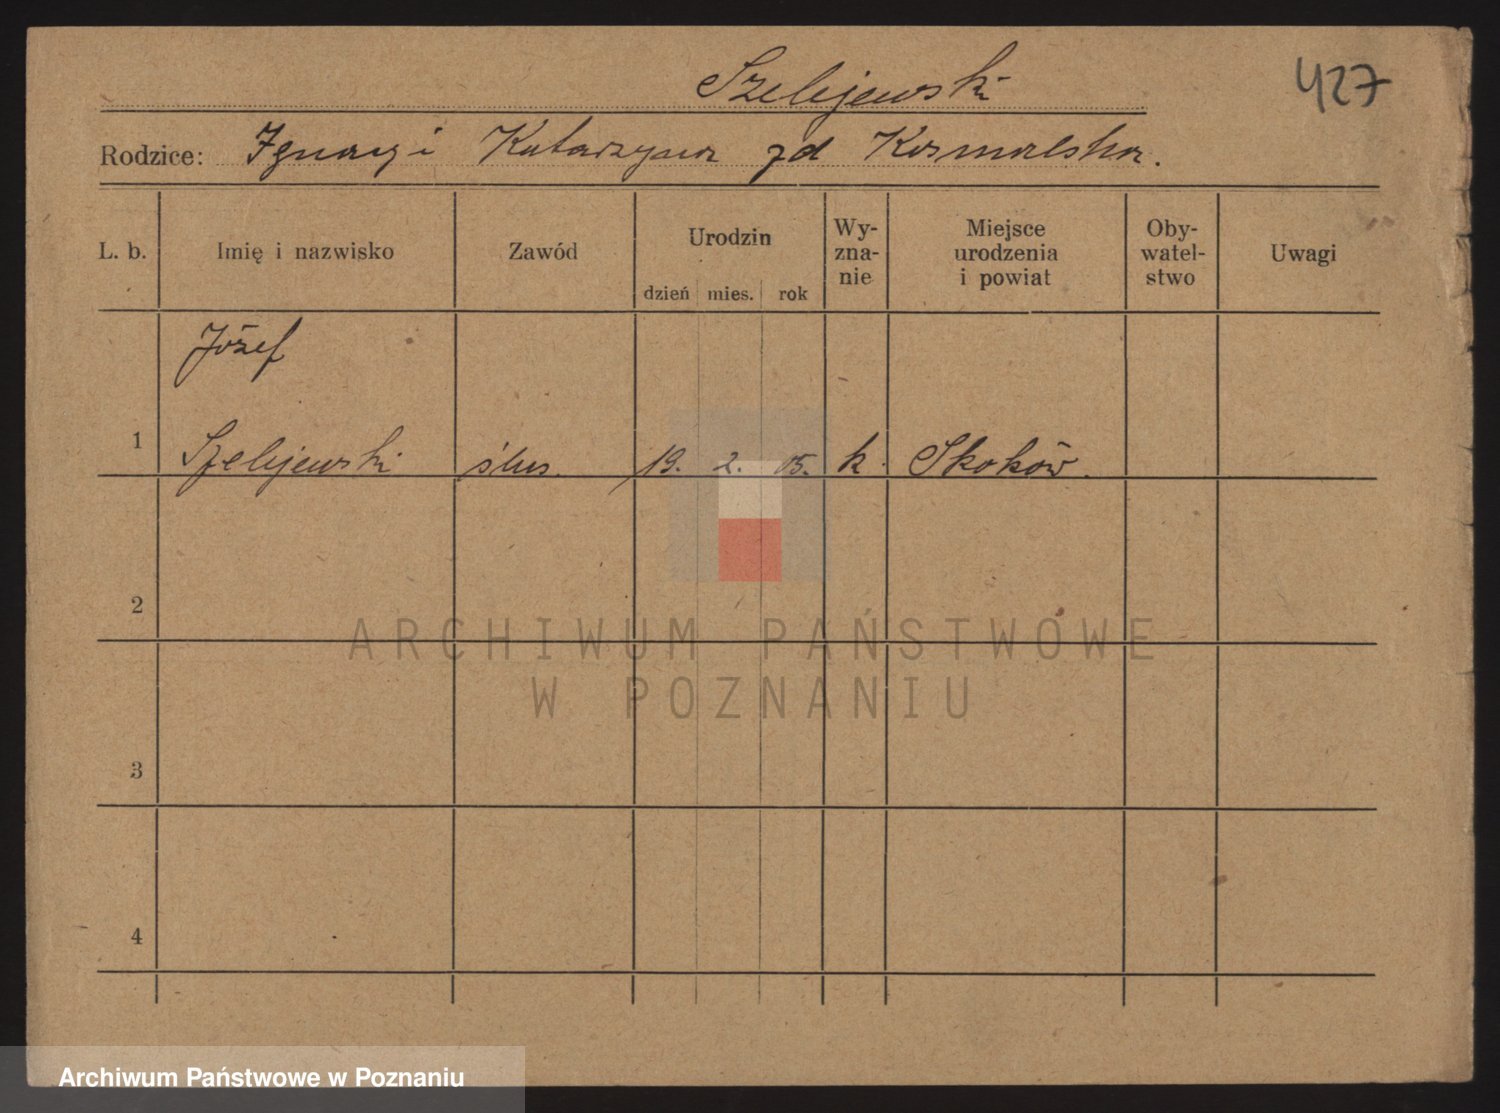 Szelejewski
427
Rodzice: Ignacy i Katarzyna zd Kosmalska.
L. b. Imię i nazwisko Zawód Urodzin dzień mies. rok Wy-zna-nie Miejsce urodzenia i powiat Oby-watel-stwo Uwagi
Józef
1 Szelejewski ślus. 19. 2. 05. k. Skoków.
2
ARCHIWUM PAŃSTWOWE
W POZNANIU
3
4
Archiwum Państwowe w Poznaniu